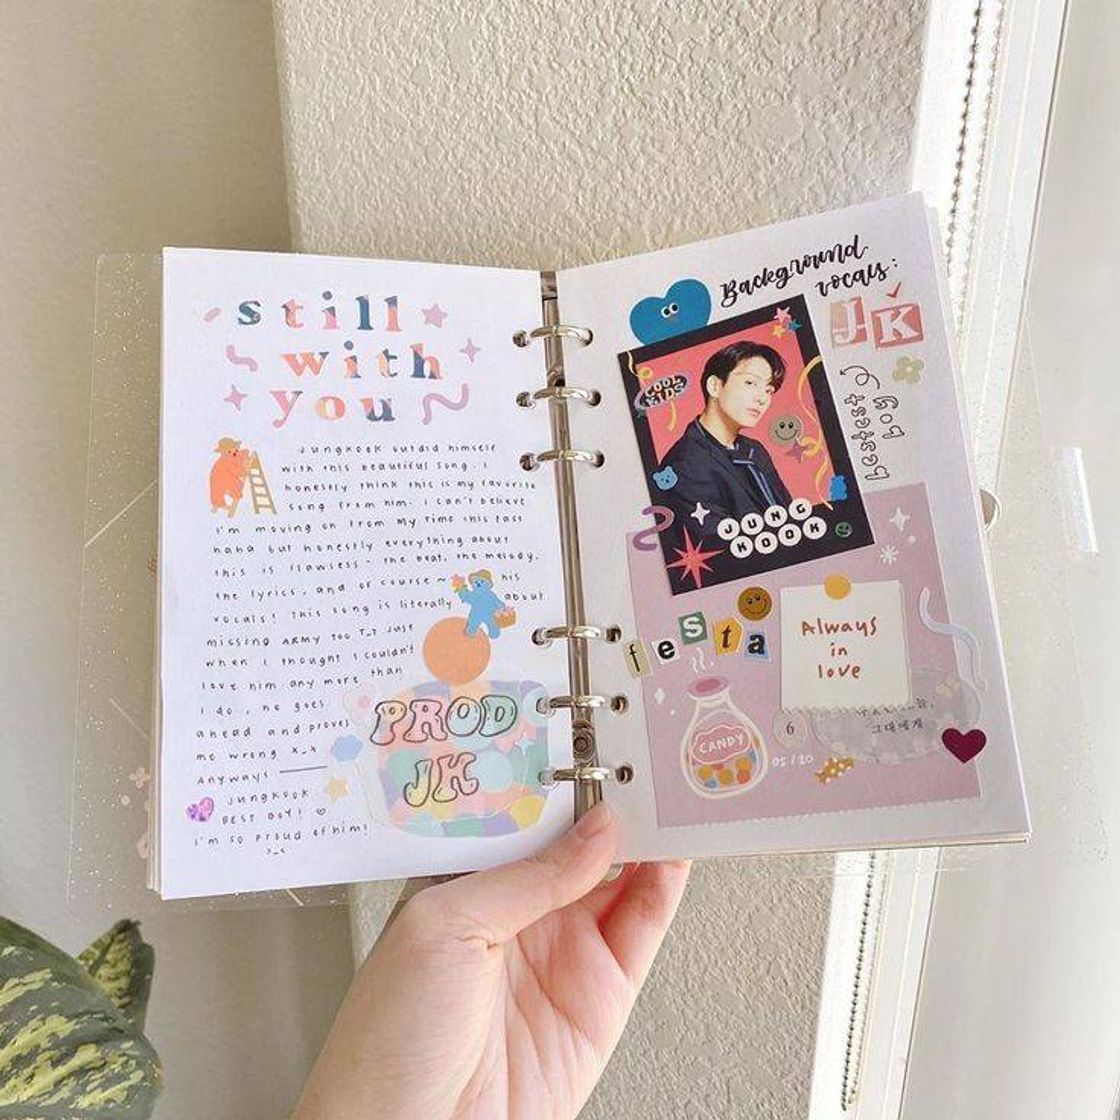 still
with
you
Jungkook outdid himself
with this beautiful song. I
honestly think this is my favorite
song from him. I can't believe
I'm moving on from My Time this fast
haha but honestly everything about
this is flawless - the beat, the melody,
the lyrics, and of course ~ his
vocals! This song is literally about
missing ARMY too T_T Just
when I thought I couldn't
love him any more than
I do, he goes
ahead and proves
me wrong x_x
Anyways
Jungkook
BEST BOY! ♡
I'm so proud of him!
>_<
PROD
JK
Background
vocals:
JK
bestest
boy
COOL
KIDS
JUNG
KOOK
festa
Always
in
love
CANDY
6
05/20
그대에게